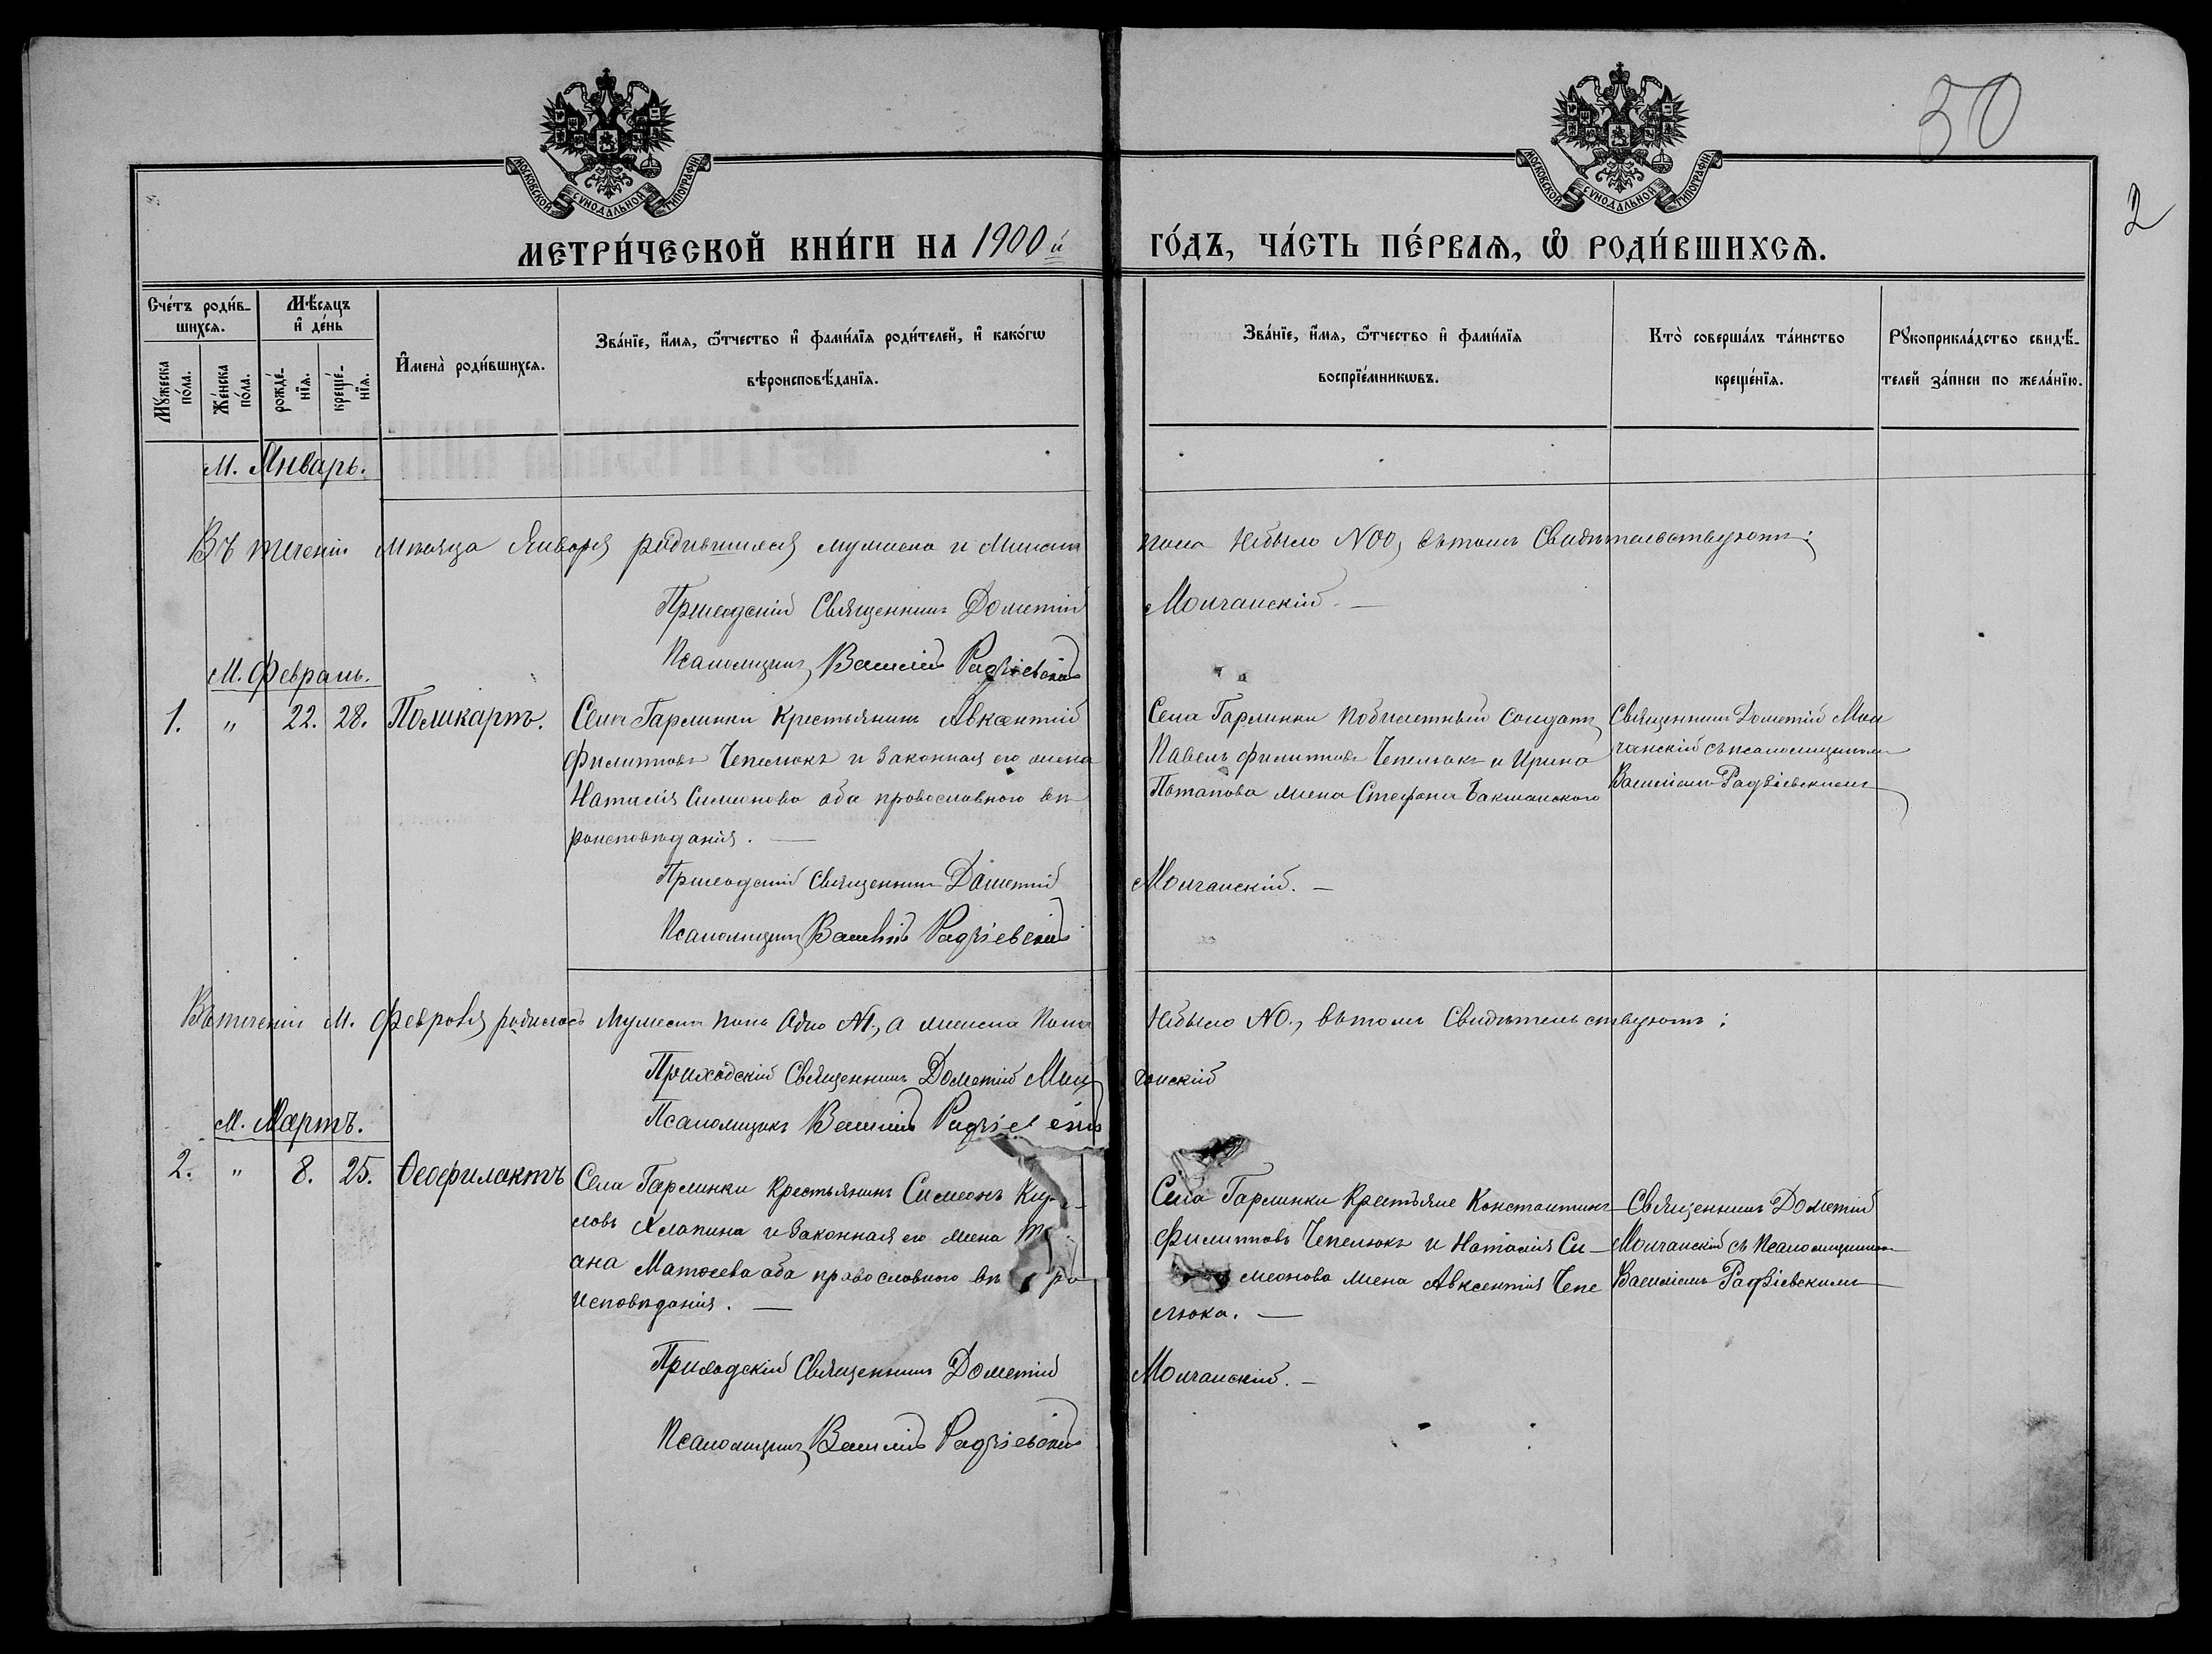 50
2
МОСКОВСКОЙ СУНОДАЛЬНОЙ ТИПОГРАФІИ.
МОСКОВСКОЙ СУНОДАЛЬНОЙ ТИПОГРАФІИ.
МЕТРИ́ЧЕСКОЙ КНИ́ГИ НА 1900й ГО́ДЪ, ЧА́СТЬ ПЕ́РВАѦ, Ѡ РОДИ́ВШИХСѦ.
Сче́тъ роди́в-
шихсѧ.
Мѣ́сѧцъ
и҆ де́нь
Мꙋ́жеска
по́ла.
Же́нска
по́ла.
рожде́-
нїѧ.
креще́-
нїѧ.
И҆мена̀ роди́вшихсѧ.
Зва́нїе, и҆́мѧ, ѻ҆́тчество и҆ фами́лїѧ роди́телей, и҆ како́гѡ
вѣроисповѣ́данїѧ.
Зва́нїе, и҆́мѧ, ѻ҆́тчество и҆ фами́лїѧ
воспрїе́мникѡвъ.
Кто̀ соверша́лъ та́инство
креще́нїѧ.
Рꙋкоприкла́дство свидѣ́-
телей за́писи по жела́нїю.
М. Январь.
Въ теченіи Мѣсяца Января родившихся мужеска и женска пола небыло №00, вътомъ Свидѣтельствуютъ:
Приходскій Священникъ Дометій Молчанскій. —
Псаломщикъ Василій Радзіевскій
М. Февраль.
1. " 22. 28. Поликарпъ.
Села Гармики Крестьянинъ Авксентій
Филипповъ Чепелюкъ и Законная его жена
Наталія Симеонова оба православного вѣ
роисповѣданія. —
Села Гарлинки побилетный Солдатъ
Павелъ Филипповъ Чепелюкъ и Ирина
Потапова жена Стефана Бакшанского
Священникъ Дометій Мол
чанскій съ псаломщикомъ
Василіемъ Радзіевскимъ
Приходскій Священникъ Дометій Молчанскій. —
Псаломщикъ Василій Радзіевскій
Втеченіи М. Февраля родилось Мужеска пола Одно №1, а женска Пола небыло №0., вътомъ Свидѣтельствуютъ:
Приходскій Священникъ Дометій Мол чанскій
Псаломщикъ Василій Радзіевскій
М. Мартъ.
2. " 8. 25. Ѳеофилактъ
Села Гарлинки Крестьянинъ Симеонъ
ловъ Хлапина и Законная его жена
ана Матѳеева оба православного вѣ ро
исповѣданія. —
Села Гарлинки Крестьяне Константинъ
Филипповъ Чепелюкъ и Наталія Си-
меонова жена Авксентія Чепе
люка. —
Священникъ Дометій
Молчанскій съ Псаломщикомъ
Василіемъ Радзіевскимъ
Приходскій Священникъ Дометій Молчанскій. —
Псаломщикъ Василій Радзіевскій